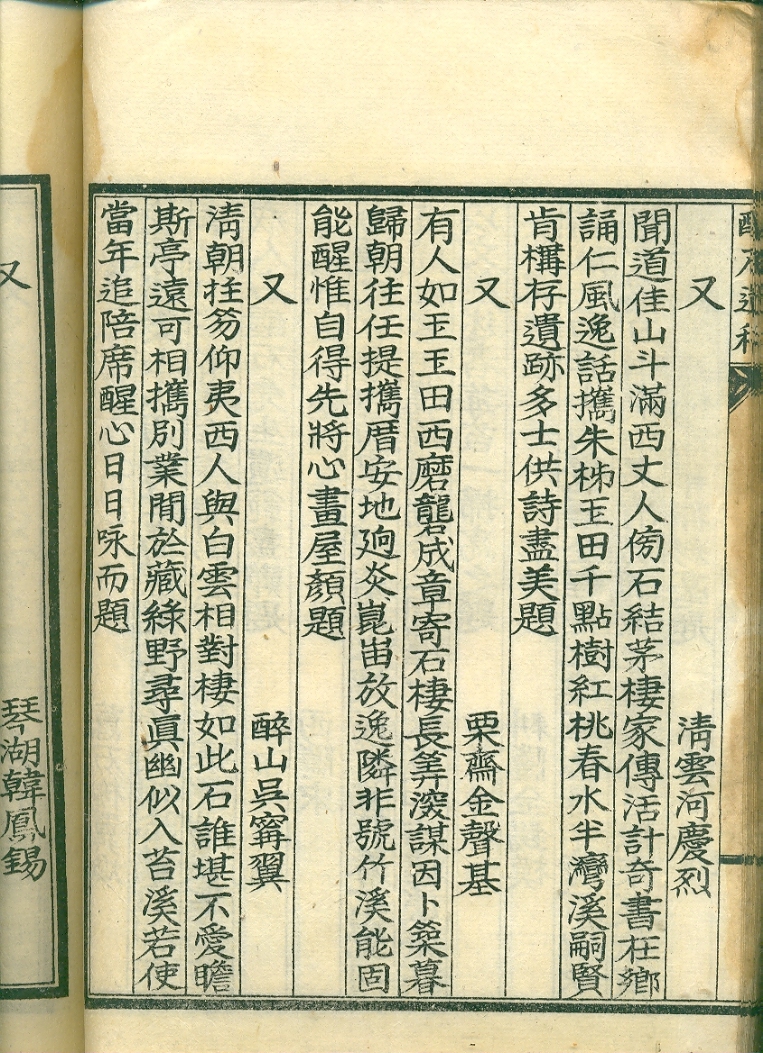 又 清雲河慶烈
聞道佳山斗滿西丈人傍石結茅棲家傳活計奇書在鄉
誦仁風逸話攜朱柹玉田千點樹紅桃春水半灣溪嗣賢
肯構存遺跡多士供詩盡美題
又 栗齋金聲基
有人如玉玉田西磨礱成章寄石棲長筭深謀因卜築暮
歸朝往任提攜厝安地逈炎崑畄放逸隣非號竹溪能固
能醒惟自得先將心畫屋顏題
又 醉山吳甯翼
清朝拄笏仰夷西人與白雲相對棲如此石誰堪不愛瞻
斯亭遠可相攜別業閒於藏綠野尋眞幽似入苔溪若使
當年追陪席醒心日日咏而題
又 琴湖韓鳳錫